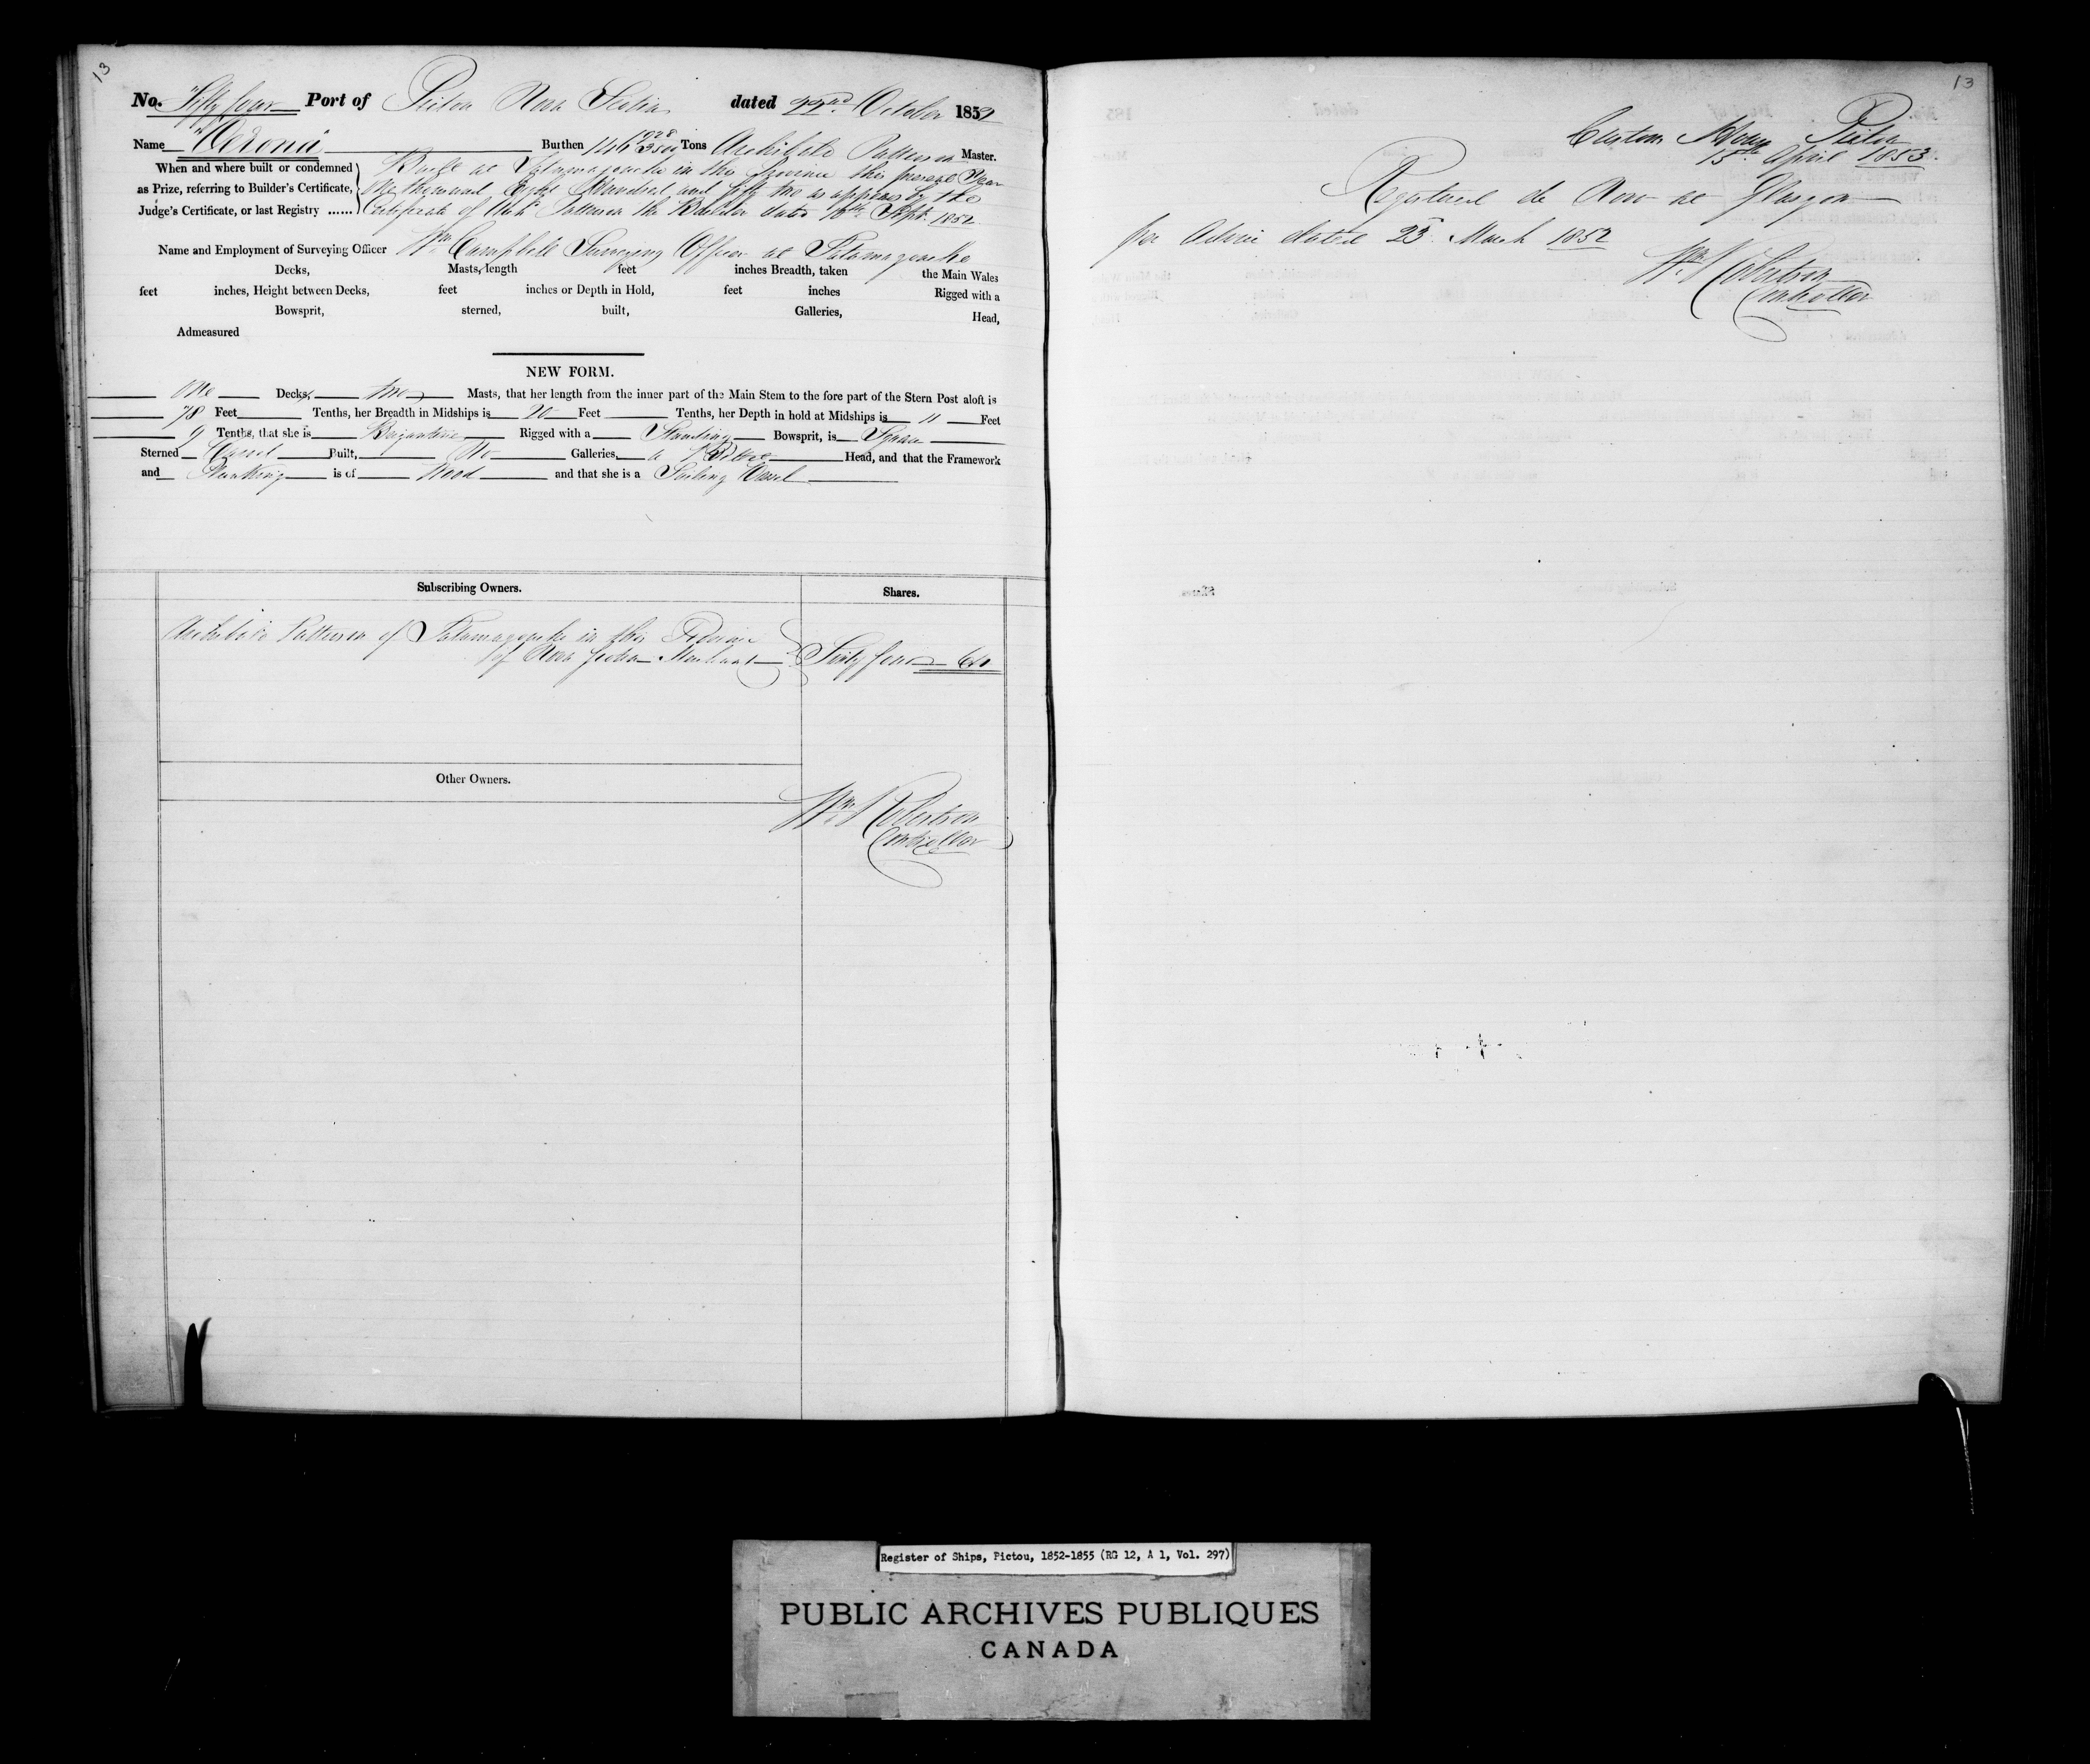 13
No. Fifty four Port of Pictou Nova Scotia dated 22nd October 1852
Name "Verona" Burthen 146 1928/3500 Tons Archibald Patterson Master.
When and where built or condemned as Prize, referring to Builder's Certificate, Judge's Certificate, or last Registry ......
Built at Tatamagouche in this Province this present Year
One thousand Eight Hundred and fifty two as appears by the
Certificate of Archd Patterson the Builder dated Sept. 1852
Name and Employment of Surveying Officer Wm Campbell Surveying Officer at Tatamagouche
Decks, Masts, length feet inches Breadth, taken the Main Wales
feet inches, Height between Decks, feet inches or Depth in Hold, feet inches Rigged with a
Bowsprit, sterned, built, Galleries, Head,
Admeasured
NEW FORM.
One Decks, two Masts, that her length from the inner part of the Main Stem to the fore part of the Stern Post aloft is
78 Feet Tenths, her Breadth in Midships is 20 Feet Tenths, her Depth in hold at Midships is 11 Feet
9 Tenths, that she is Brigantine Rigged with a Standing Bowsprit, is Square
Sterned Carvel Built, No Galleries, a Billet Head, and that the Framework
and Planking is of Wood and that she is a Sailing Vessel
Subscribing Owners. Shares.
Archibald Patterson of Tatamagouche in this Province
of Nova Scotia Merchant Sixty four 64
Other Owners.
Wm Robertson
Controller
13
Custom House Pictou
15th April 1853.
Registered de Novo at Glasgow
per Advice dated 23 March 1852
Wm Robertson
Controller
Register of Ships, Pictou, 1852-1855 (RG 12, A 1, Vol. 297)
PUBLIC ARCHIVES PUBLIQUES
CANADA